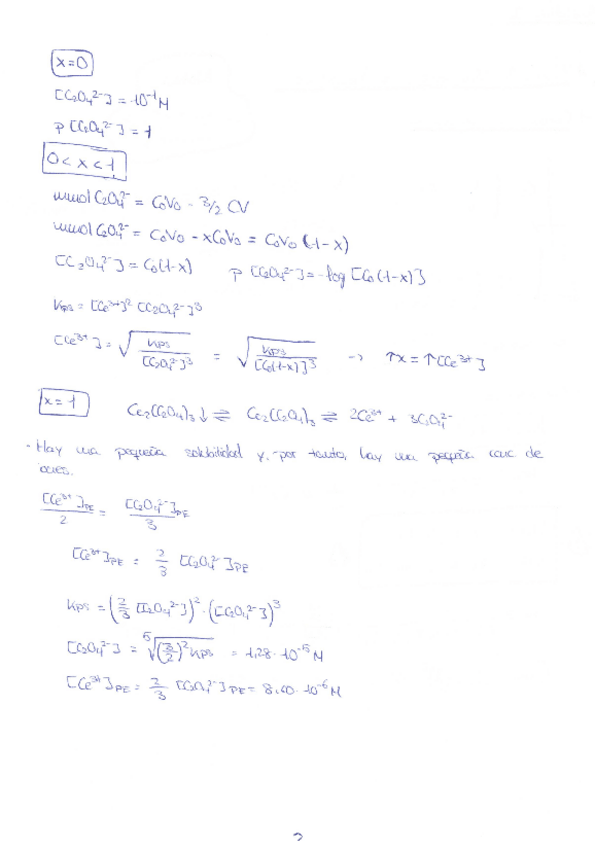 x=0
[C₂O₄²⁻] = 10⁻¹ M
p[C₂O₄²⁻] = 1
0 < x < 1
mmol C₂O₄²⁻ = C₀V₀ - 3/2 CV
mmol C₂O₄²⁻ = C₀V₀ - xC₀V₀ = C₀V₀ (1-x)
[C₂O₄²⁻] = C₀(1-x) p[C₂O₄²⁻] = -log [C₀(1-x)]
Kps = [Ce³⁺]² [C₂O₄²⁻]³
[Ce³⁺] = √(Kps/[C₂O₄²⁻]³) = √(Kps/[C₀(1-x)]³) → ↑x = ↑[Ce³⁺]
x = 1 Ce₂(C₂O₄)₃↓ ⇌ Ce₂(C₂O₄)₃ ⇌ 2Ce³⁺ + 3C₂O₄²⁻
- Hay una pequeña solubilidad y, por tanto, hay una pequeña conc de
[Ce³⁺]PE/2 = [C₂O₄²⁻]PE/3
[Ce³⁺]PE = 2/3 [C₂O₄²⁻]PE
Kps = (2/3 [C₂O₄²⁻])² · ([C₂O₄²⁻])³
[C₂O₄²⁻] = ⁵√((3/2)² Kps) = 1,28 · 10⁻⁵ M
[Ce³⁺]PE = 2/3 [C₂O₄²⁻]PE = 8,60 · 10⁻⁶ M
2